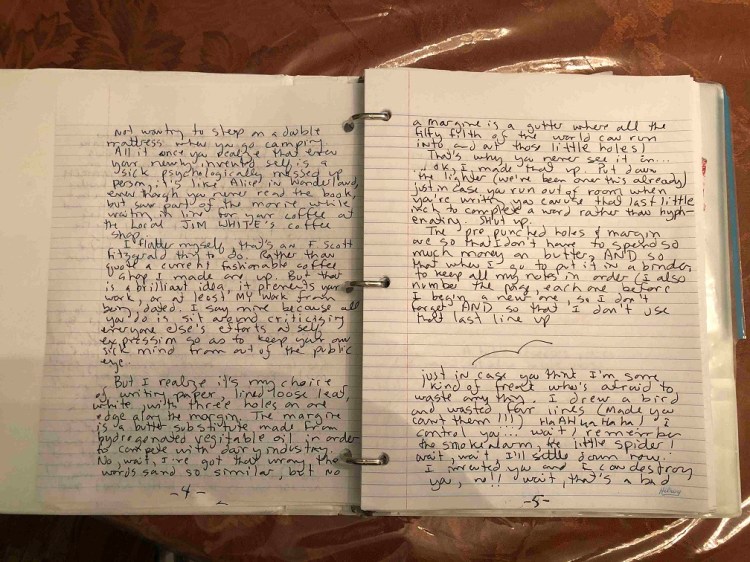 not wanting to sleep on a double
mattress when you go camping.
All it once you realize that even
your newly invented self is a
sick psychologically messed up
person, it's like Alice in Wonderland,
even though you never read the book,
but saw part of the movie while
waiting in line for your coffee at
the local JIM WHITE'S coffee
shop.
I flatter myself, that's an F. Scott
Fitzgerald thing to do. Rather than
quote a current fashionable coffee
shop I made one up. But that
is a brilliant idea, it prevents your
work, or at least MY work from
being dated. I say mine because all
you do is sit around criticising
everyone else's efforts at self
expression so as to keep your own
sick mind from out of the public
eye.
But I realize it's my choice
of writing paper, lined loose leaf,
white with three holes on one
edge along the margin. The margine
is a butter substitute made from
hydrogenated vegitable oil in order
to compete with dairy industry.
No, wait, I've got that wrong, the
words sand so similar, but no
-4-
a margine is a gutter where all the
filfy filth of the world can run
into and out those little holes)
That's why you never see it in...
... ok, I made that up. Put down
the lighter (we've been over this already)
just in case you run out of room when
you're writing you can use that last little
inch to complete a word rather than hyph-
enating. Shut up.
The pre punched holes & margin
are so that I don't have to spend so
much money on butter, AND so
that when I go to put it in a binder
to keep all my notes in order (I also
number the page, each one before
I begin a new one, so I don't
forget) AND so that I don't use
that last line up
just in case you think I'm some
kind of freak who's afraid to
waste anything. I drew a bird
and wasted four lines (Made you
count them!!!) HaAH Ha Ha Ha! I
control you... wait, I remember
the smoke alarm, the little spider!
wait, wait I'll settle down now.
I invented you and I can destroy
you, no!! wait, that's a bad
-5-